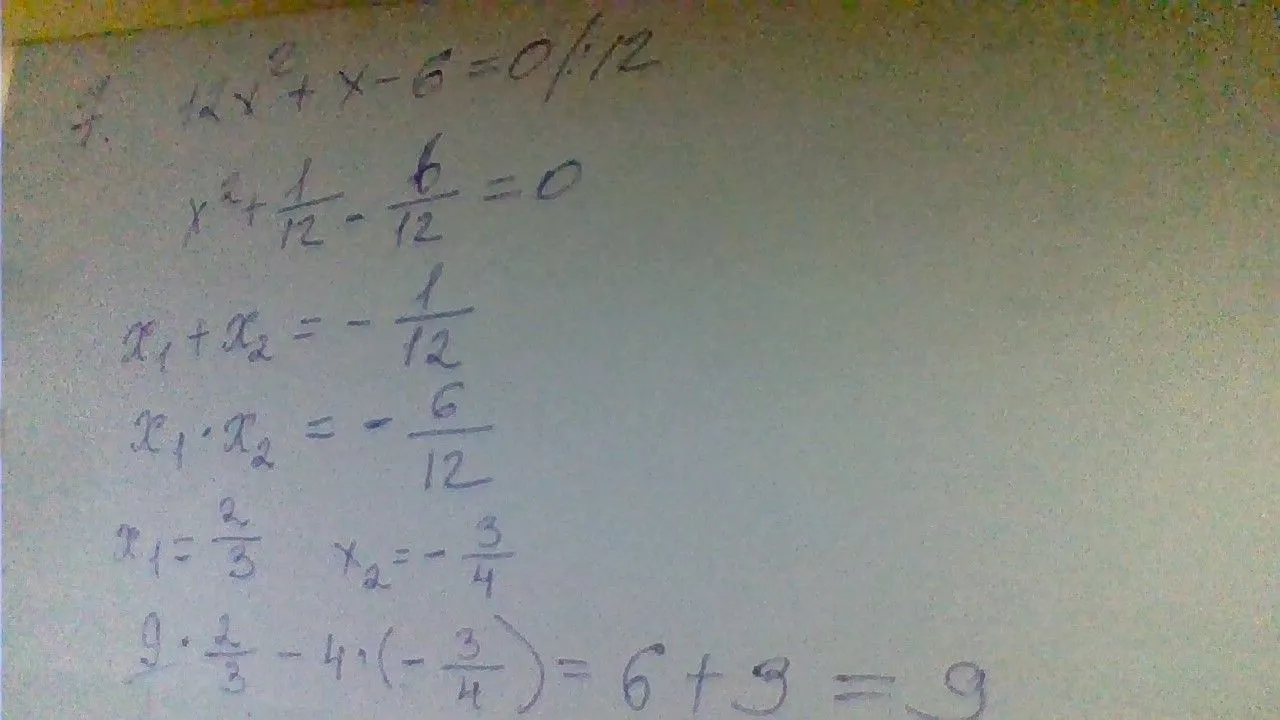 1. 12x² + x - 6 = 0 /:12
x² + 1/12 - 6/12 = 0
x₁ + x₂ = - 1/12
x₁ · x₂ = - 6/12
x₁ = 2/3 x₂ = - 3/4
9 · 2/3 - 4 · (- 3/4) = 6 + 3 = 9